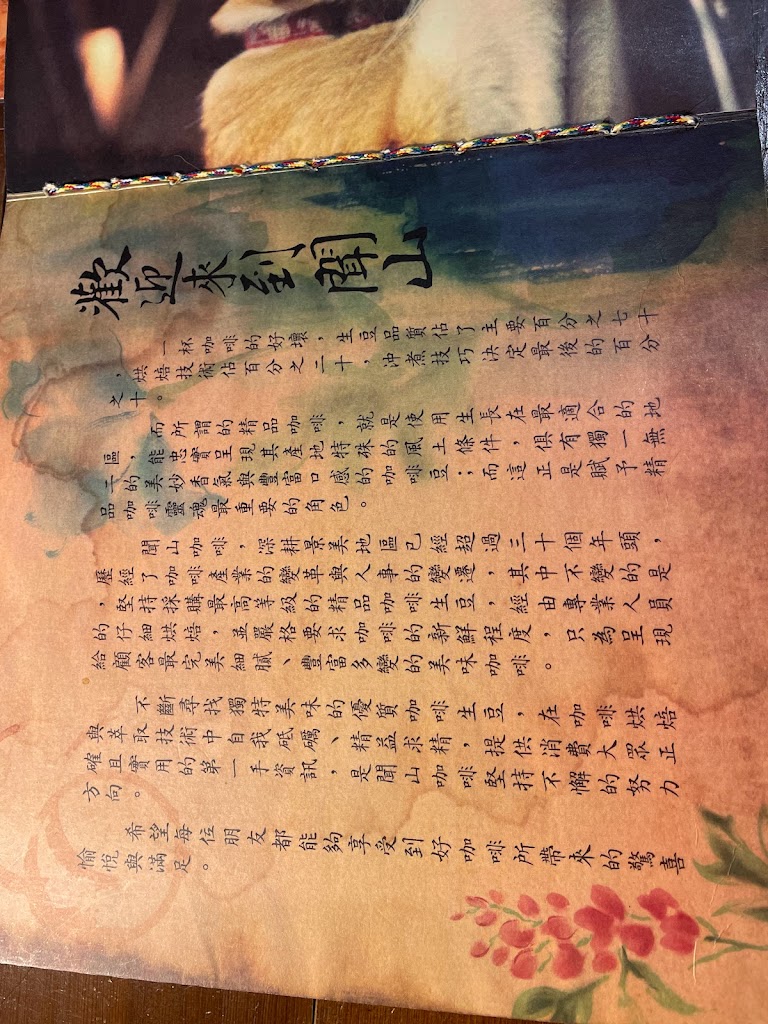 歡迎來到聞山
一杯咖啡的好壞，生豆品質佔了主要百分之七十
，烘焙技術佔百分之二十，沖煮技巧決定最後的百分
之十。
而所謂的精品咖啡，就是使用生長在最適合的地
區，能忠實呈現其產地特殊的風土條件，俱有獨一無
二的美妙香氣與豐富口感的咖啡豆；而這正是賦予精
品咖啡靈魂最重要的角色。
聞山咖啡，深耕景美地區已經超過三十個年頭，
歷經了咖啡產業的變革與人事的變遷，其中不變的是
，堅持採購最高等級的精品咖啡生豆，經由專業人員
的仔細烘焙，並嚴格要求咖啡的新鮮程度，只為呈現
給顧客最完美細膩、豐富多變的美味咖啡。
不斷尋找獨特美味的優質咖啡生豆，在咖啡烘焙
與萃取技術中自我砥礪、精益求精，提供消費大眾正
確且實用的第一手資訊，是聞山咖啡堅持不懈的努力
方向。
希望每位朋友都能夠享受到好咖啡所帶來的驚喜
愉悅與滿足。